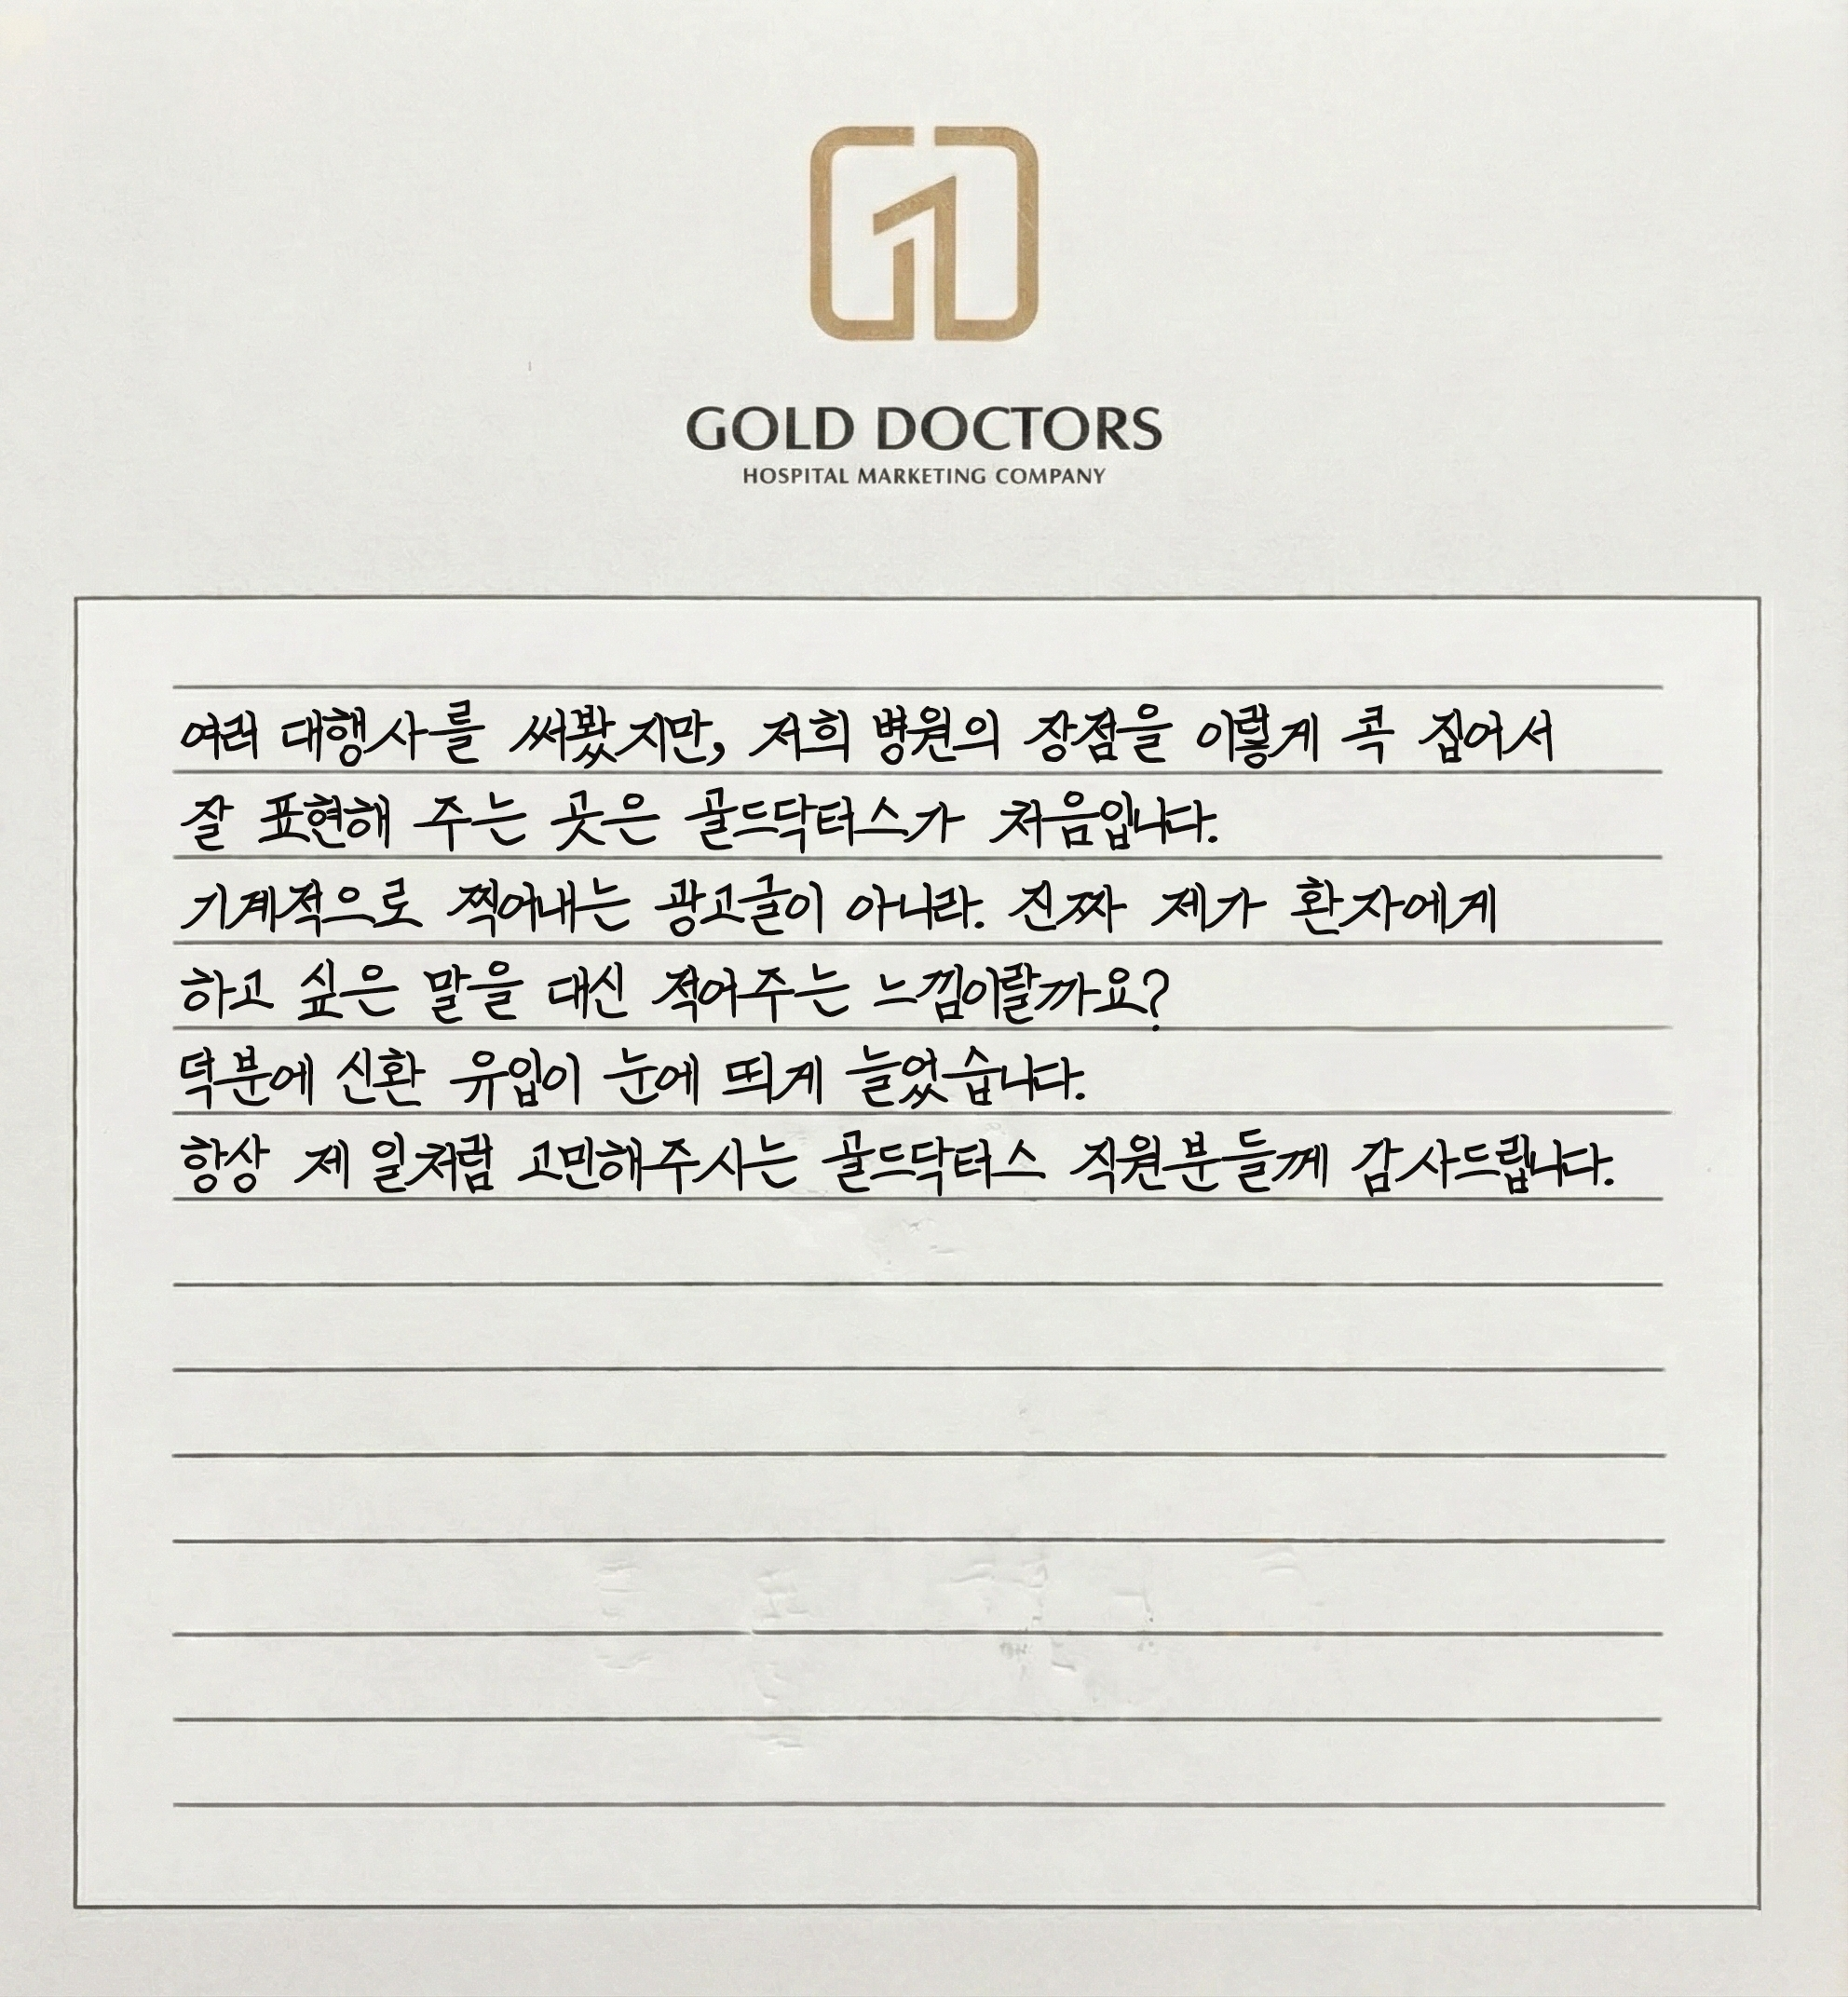 GOLD DOCTORS
HOSPITAL MARKETING COMPANY
여러 대행사를 써봤지만, 저희 병원의 장점을 이렇게 콕 집어서
잘 표현해 주는 곳은 골드닥터스가 처음입니다.
기계적으로 찍어내는 광고글이 아니라. 진짜 제가 환자에게
하고 싶은 말을 대신 적어주는 느낌이랄까요?
덕분에 신환 유입이 눈에 띄게 늘었습니다.
항상 제 일처럼 고민해주시는 골드닥터스 직원분들께 감사드립니다.